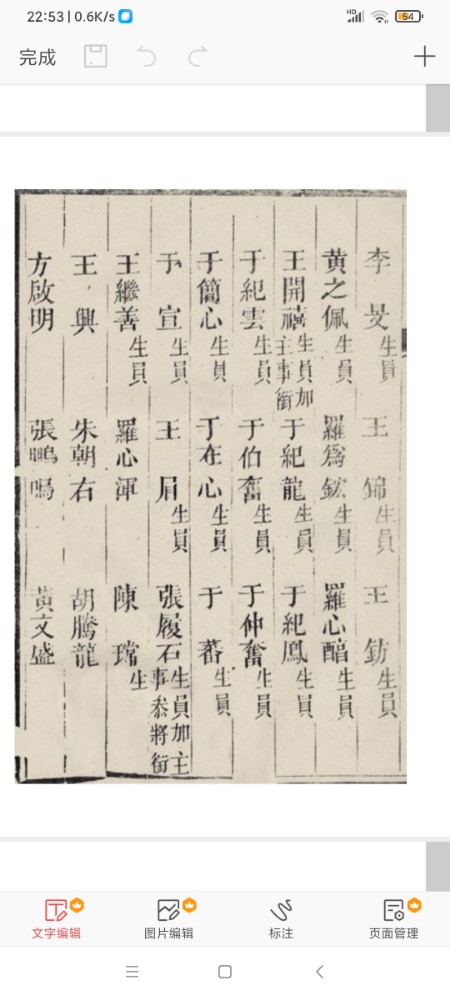 22:53 | 0.6K/s
HD
54
完成
李旻生員
王錦生員
王鈁生員
黃之佩生員
羅爲鈜生員
羅心醕生員
王開禧生員加主事銜
于紀龍生員
于紀鳳生員
于紀雲生員
于伯奮生員
于仲奮生員
于簡心生員
于在心生員
于蕃生員
于宣生員
王眉生員
張履石生員加主事叅將銜
王繼善生員
羅心渾
陳瑺生
王興
朱朝右
胡騰龍
方啟明
張鵬鳴
黃文盛
文字编辑
图片编辑
标注
页面管理